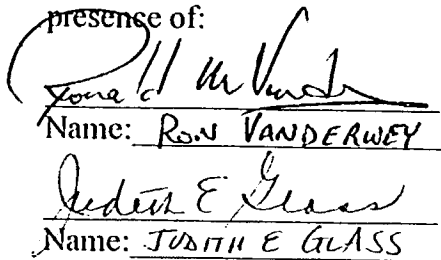 presence of:
Name: RON VANDERWEY
Judith E Glass
Name: JUDITH E GLASS